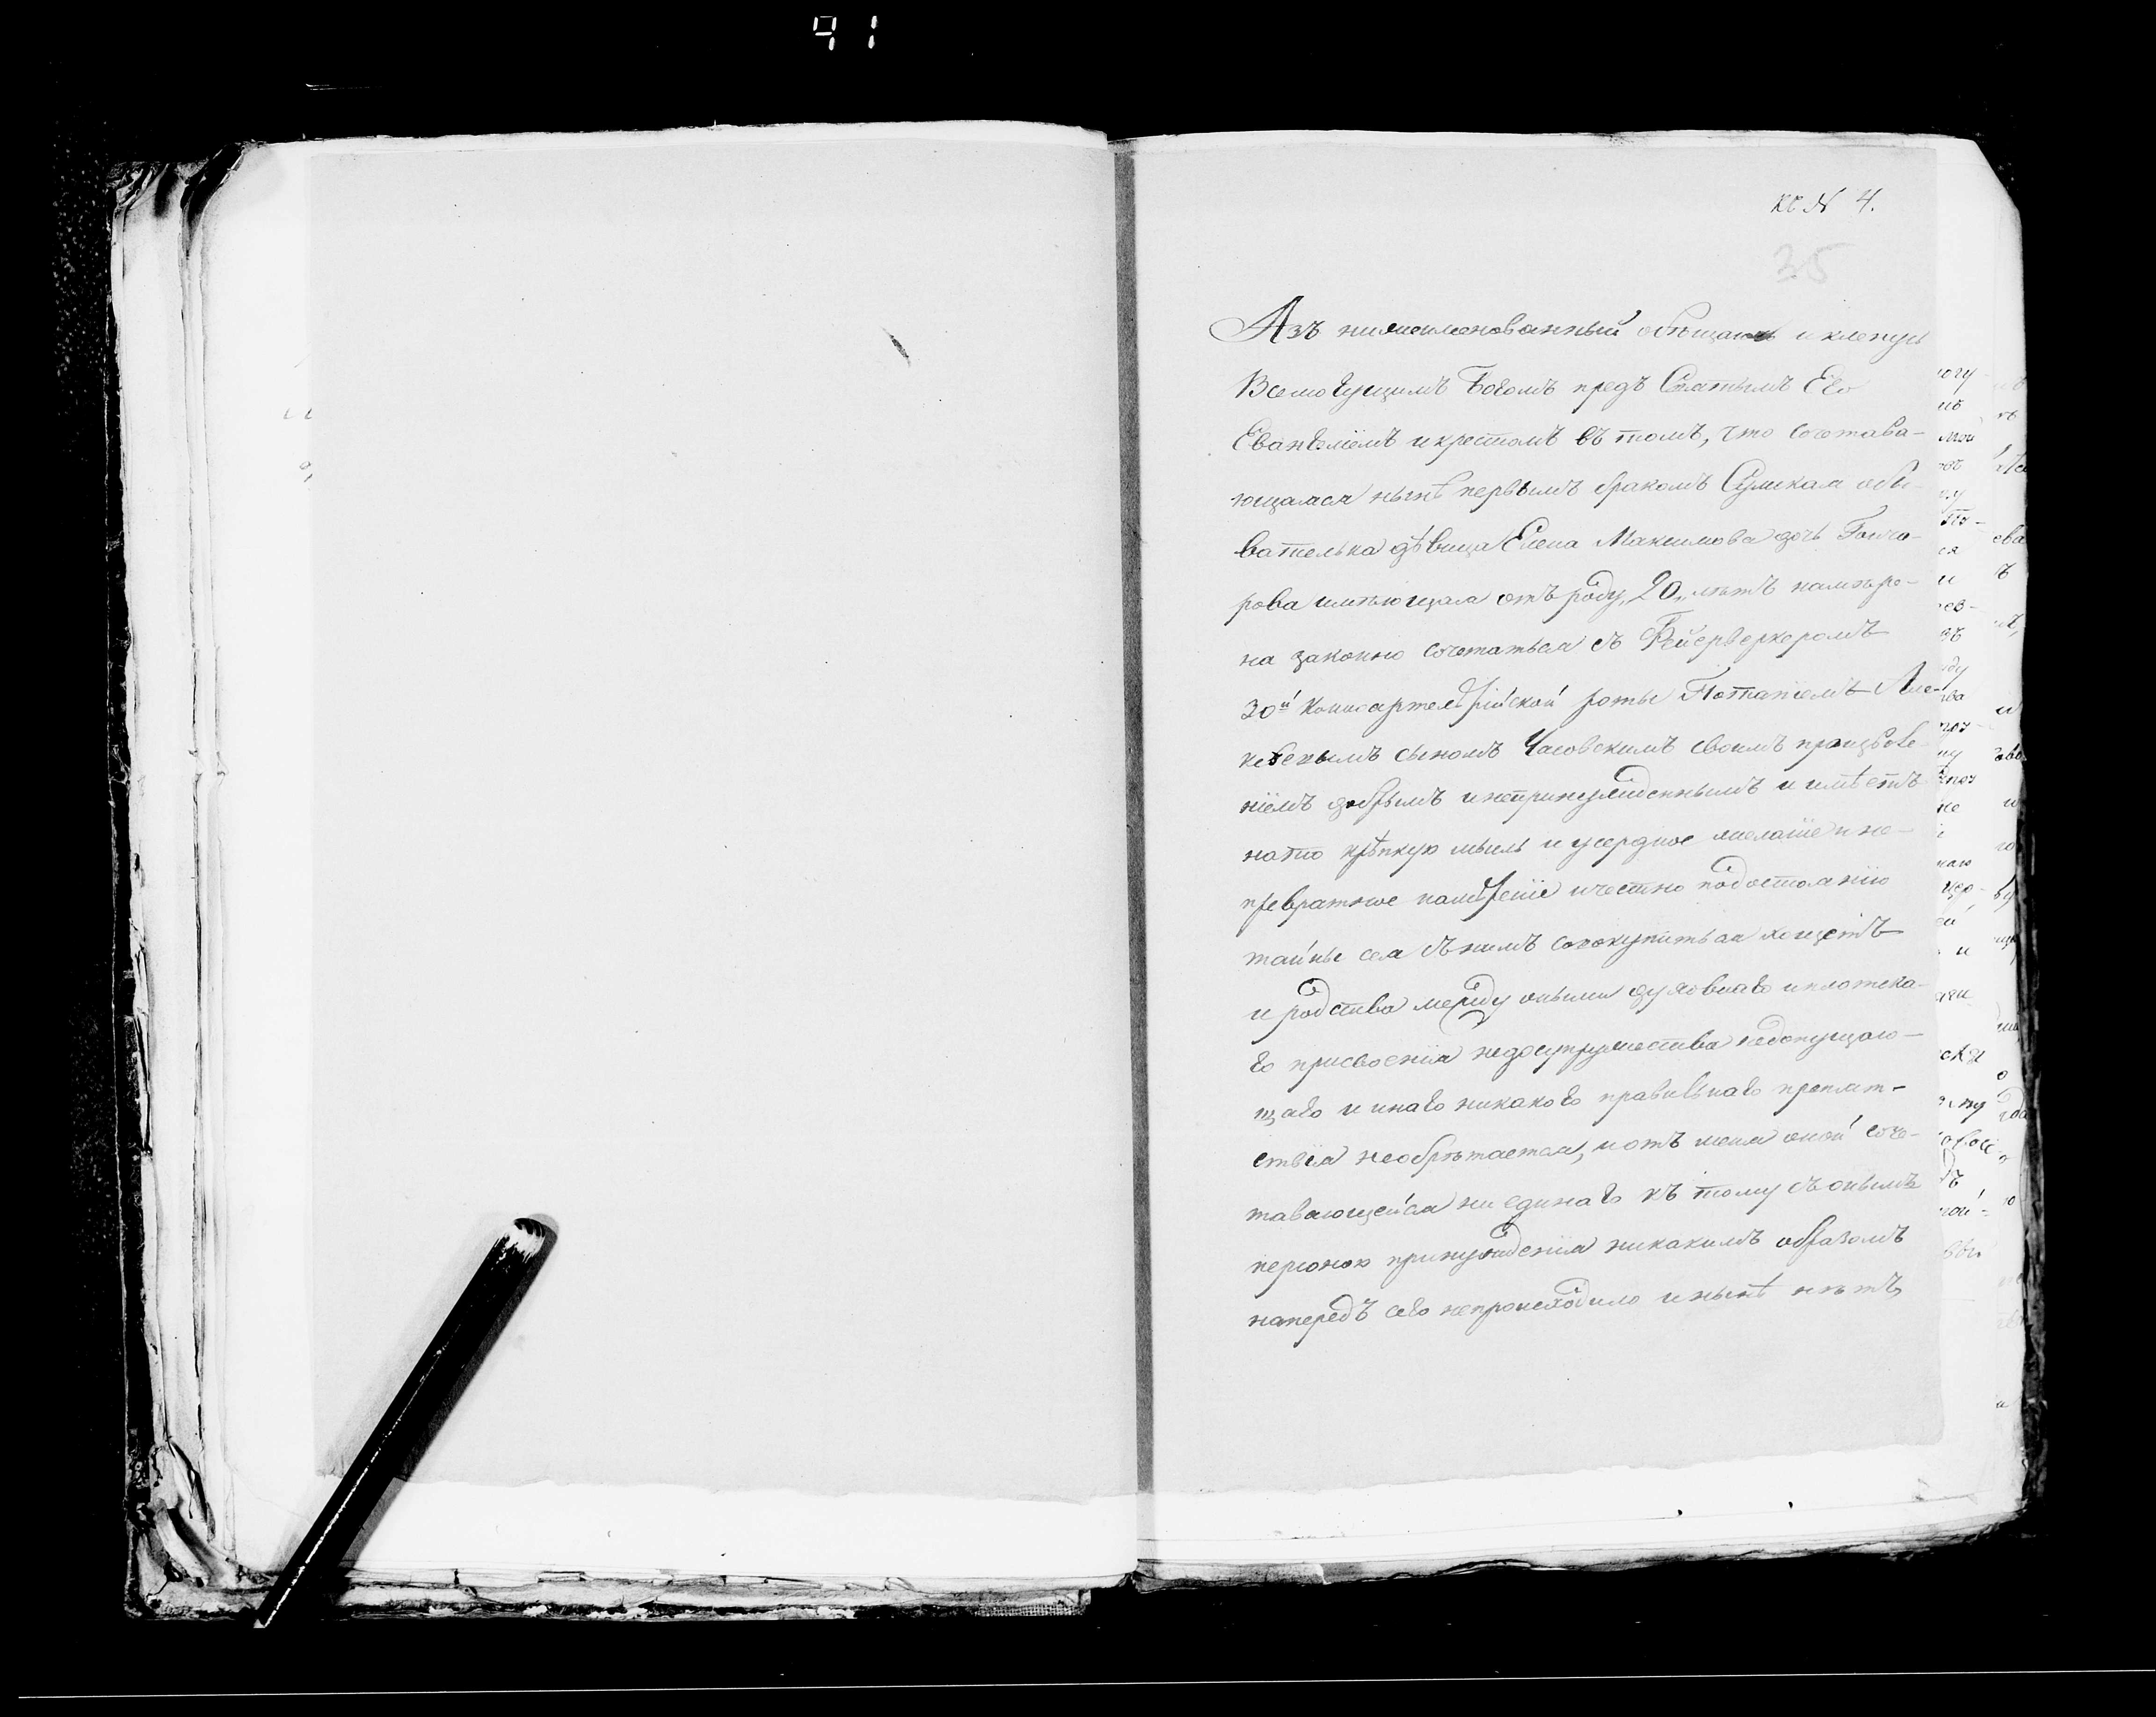 41
къ № 4.
35
Азъ нижеименованный обѣщаюсь и кленусь
Всемогущимъ Богомъ предъ Святымъ Его
Евангелїемъ и крестомъ въ томъ, что сочетава-
ющаяся нынѣ первымъ бракомъ Сумская обы-
вателька дѣвица Елена Максимова дочь Гонча-
рова имѣющая отъ роду „20„ лѣтъ намѣре-
на законно сочетаться съ Фейерверкеромъ
30й Конноартелѣрїйской роты Потапїемъ Але-
ксѣевымъ сыномъ Часовскимъ своимъ произволе-
нїемъ добрымъ и непринужденнымъ и имѣетъ
на то крѣпкую мысль и усердное желанїе и не-
превратное намѣренїе и честно по достоянїю
тайны сея съ нимъ совокупиться хощетъ
и родства между оными духовнаго и плотска-
го присвоенїя недосупружества недопущаю-
щаго и инаго никакого правильнаго препят-
ствїя необрѣтается, и отъ меня оной соче-
тавающейся ни единаго къ тому съ онымъ
персоною принужденїя никакимъ образомъ
напередъ сего непроисходило и нынѣ нѣтъ,